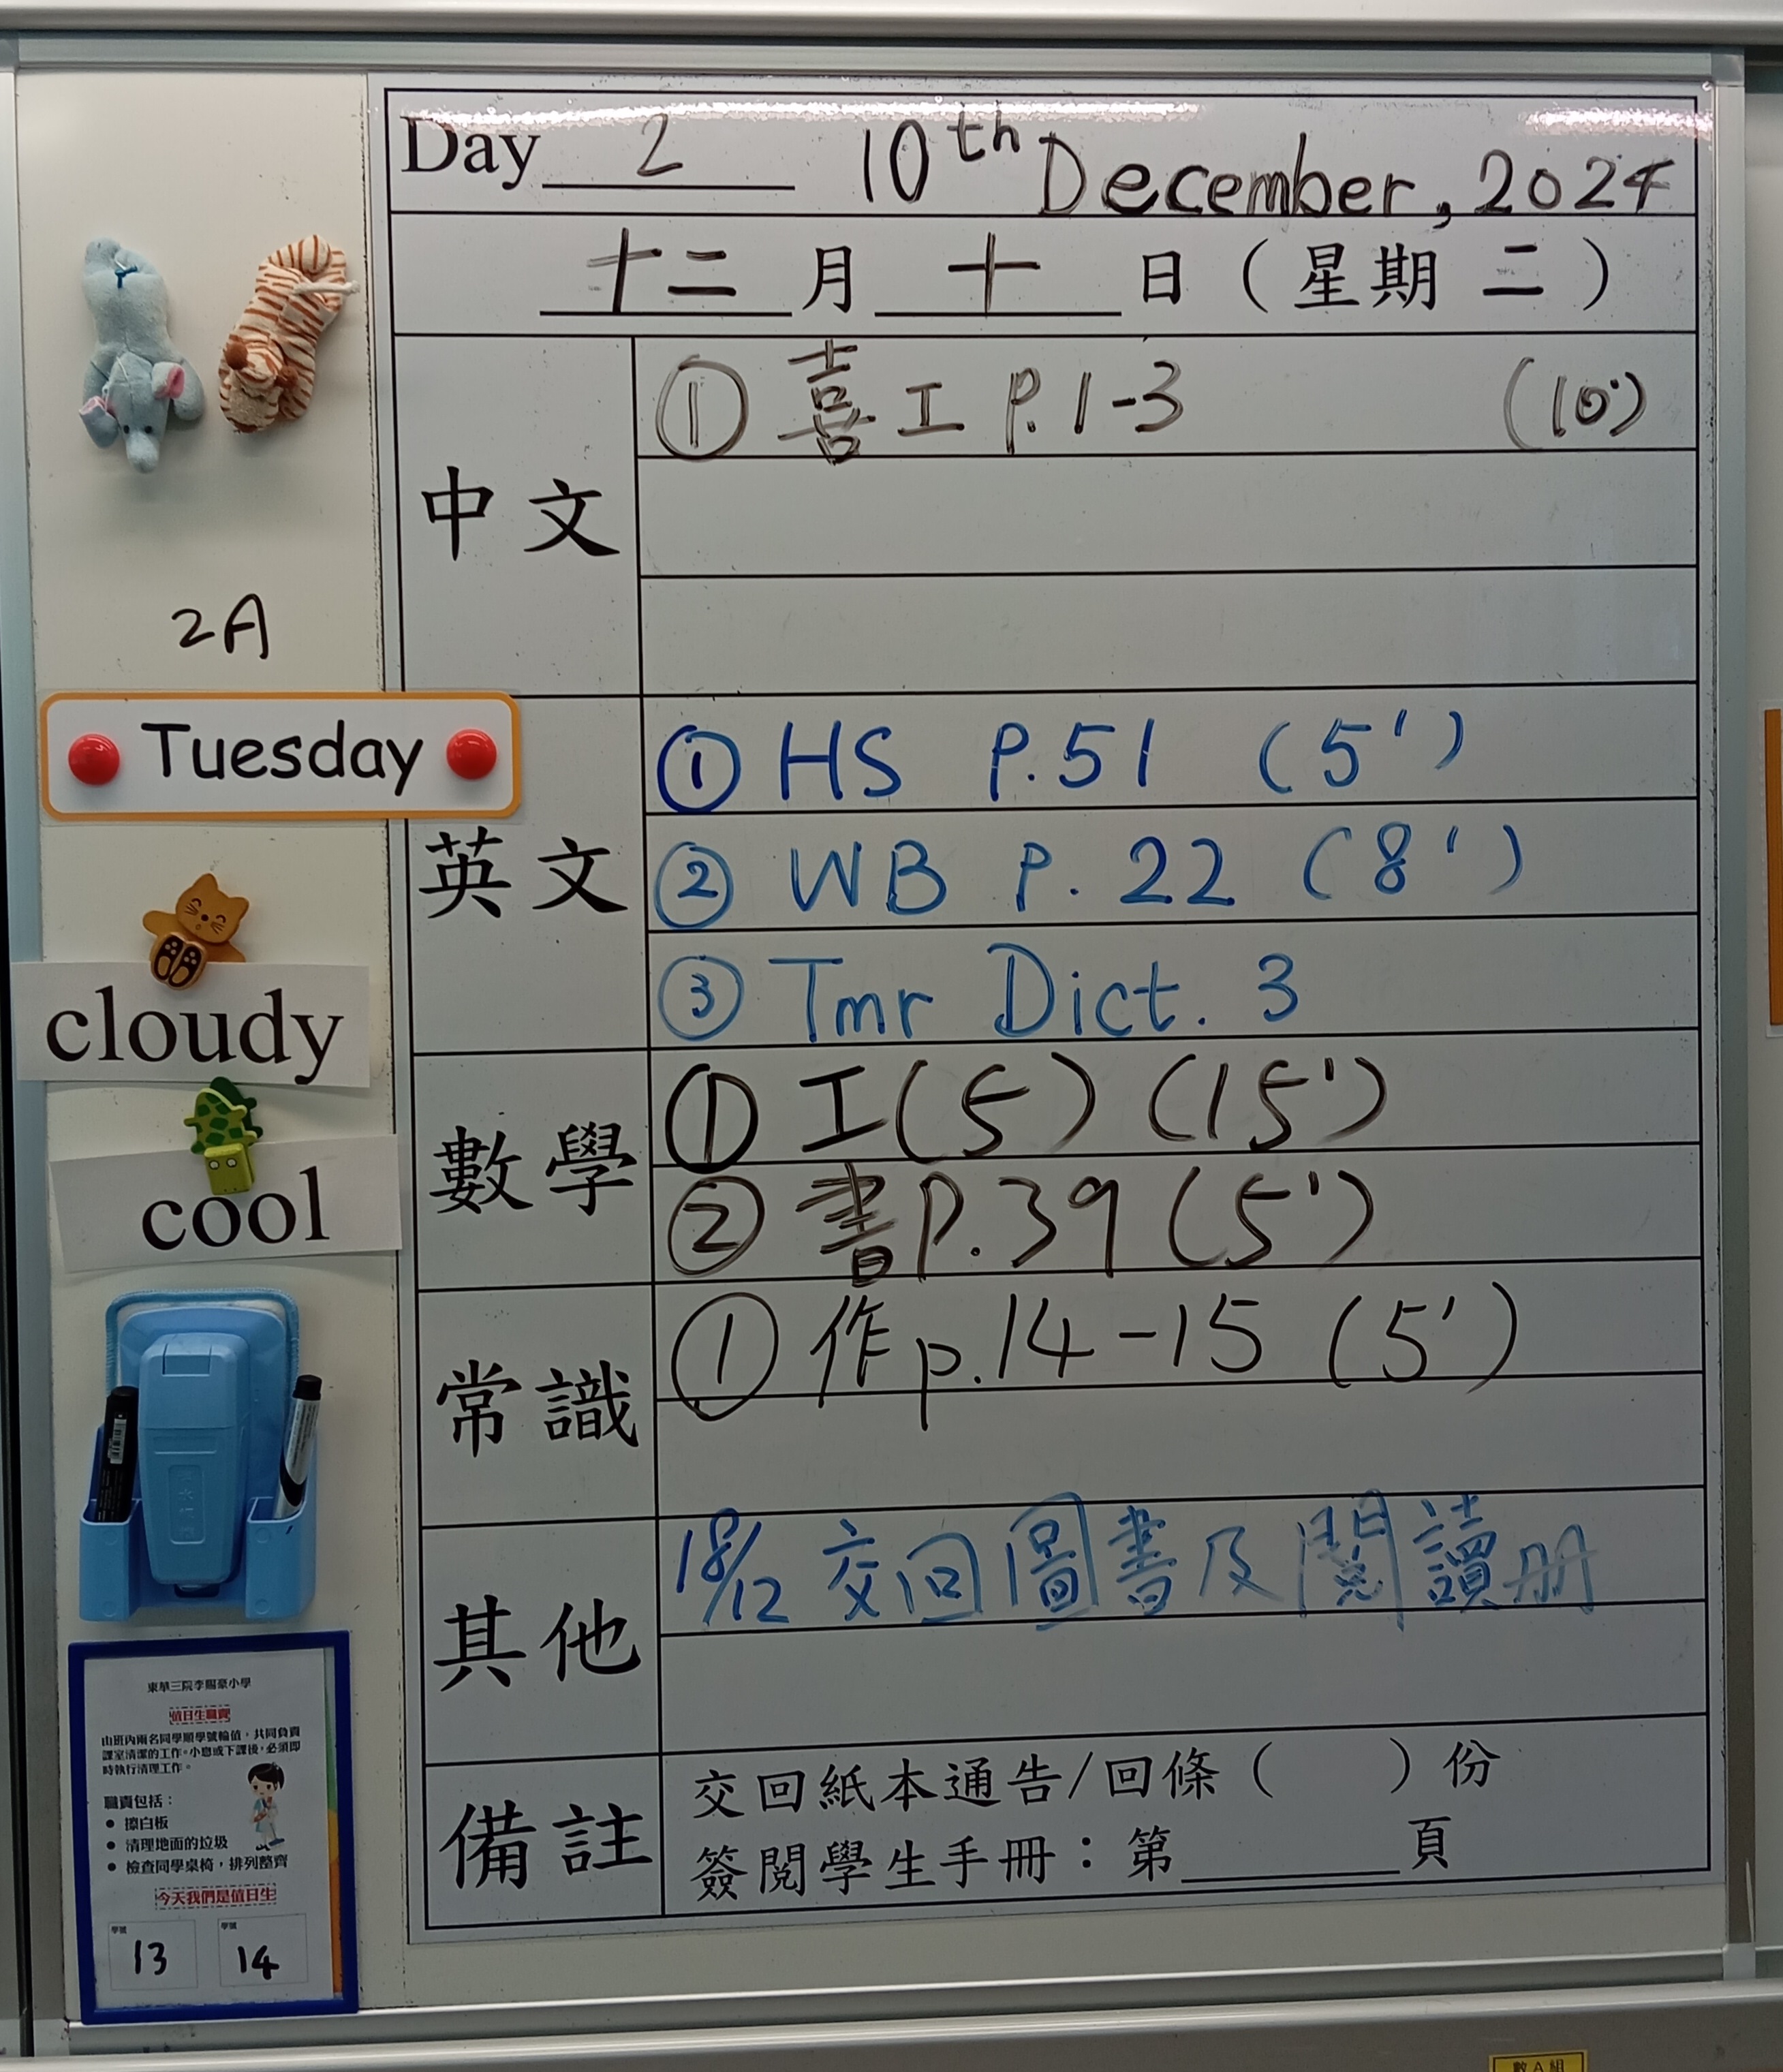 Day 2 10th December, 2024
十二月十日（星期二）
中文
① 喜工 P.1-3 (10')
2A
Tuesday
英文
① HS P.51 (5')
② WB P.22 (8')
③ Tmr Dict. 3
cloudy
cool
數學
① 工(5) (15')
② 書P.39 (5')
常識
① 作p.14-15 (5')
其他
18/12 交回圖書及閱讀册
備註
交回紙本通告/回條（　　）份
簽閱學生手冊：第______頁
東華三院李賜豪小學
值日生職責
由班內兩名同學順學號輪值，共同負責
課室清潔的工作。小息或下課後，必須即
時執行清理工作。
職責包括：
● 擦白板
● 清理地面的垃圾
● 檢查同學桌椅，排列整齊
今天我們是值日生
學號 學號
13 14
數A組